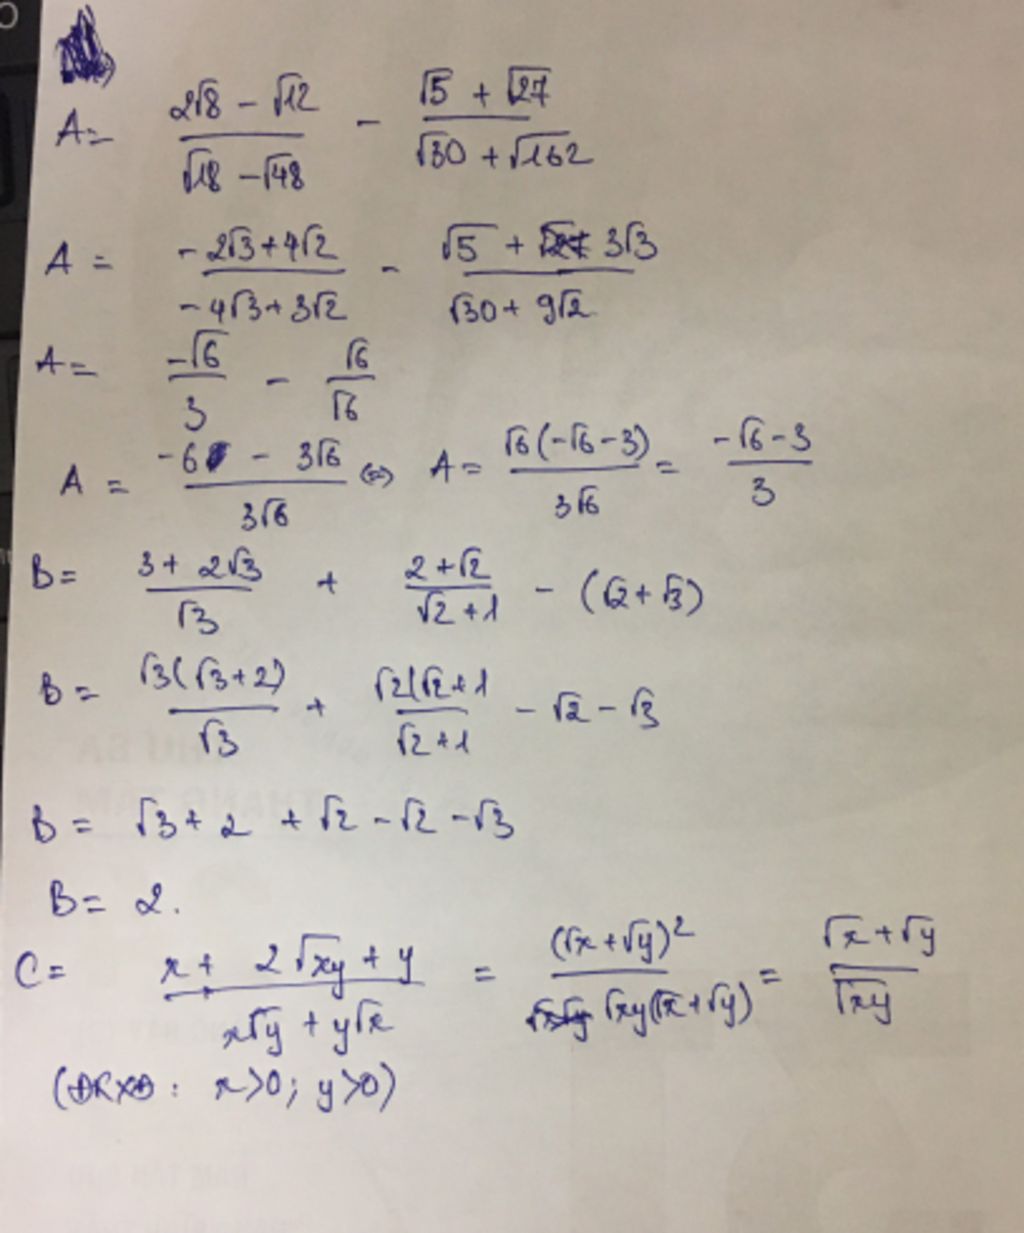 A = (2√8 - √12)/(√18 - √48) - (√5 + √27)/(√30 + √162)
A = (-2√3 + 4√2)/(-4√3 + 3√2) - (√5 + 3√3)/(√30 + 9√2)
A = -√6/3 - √6/√6
A = (-6 - 3√6)/3√6 ⇔ A = √6(-√6 - 3)/3√6 = (-√6 - 3)/3
B = (3 + 2√3)/√3 + (2 + √2)/(√2 + 1) - (√2 + √3)
B = √3(√3 + 2)/√3 + √2(√2 + 1/(√2 + 1) - √2 - √3
B = √3 + 2 + √2 - √2 - √3
B = 2.
C = (x + 2√xy + y)/(x√y + y√x) = (√x + √y)²/√xy(√x + √y) = (√x + √y)/√xy
(ĐKXĐ : x>0; y>0)